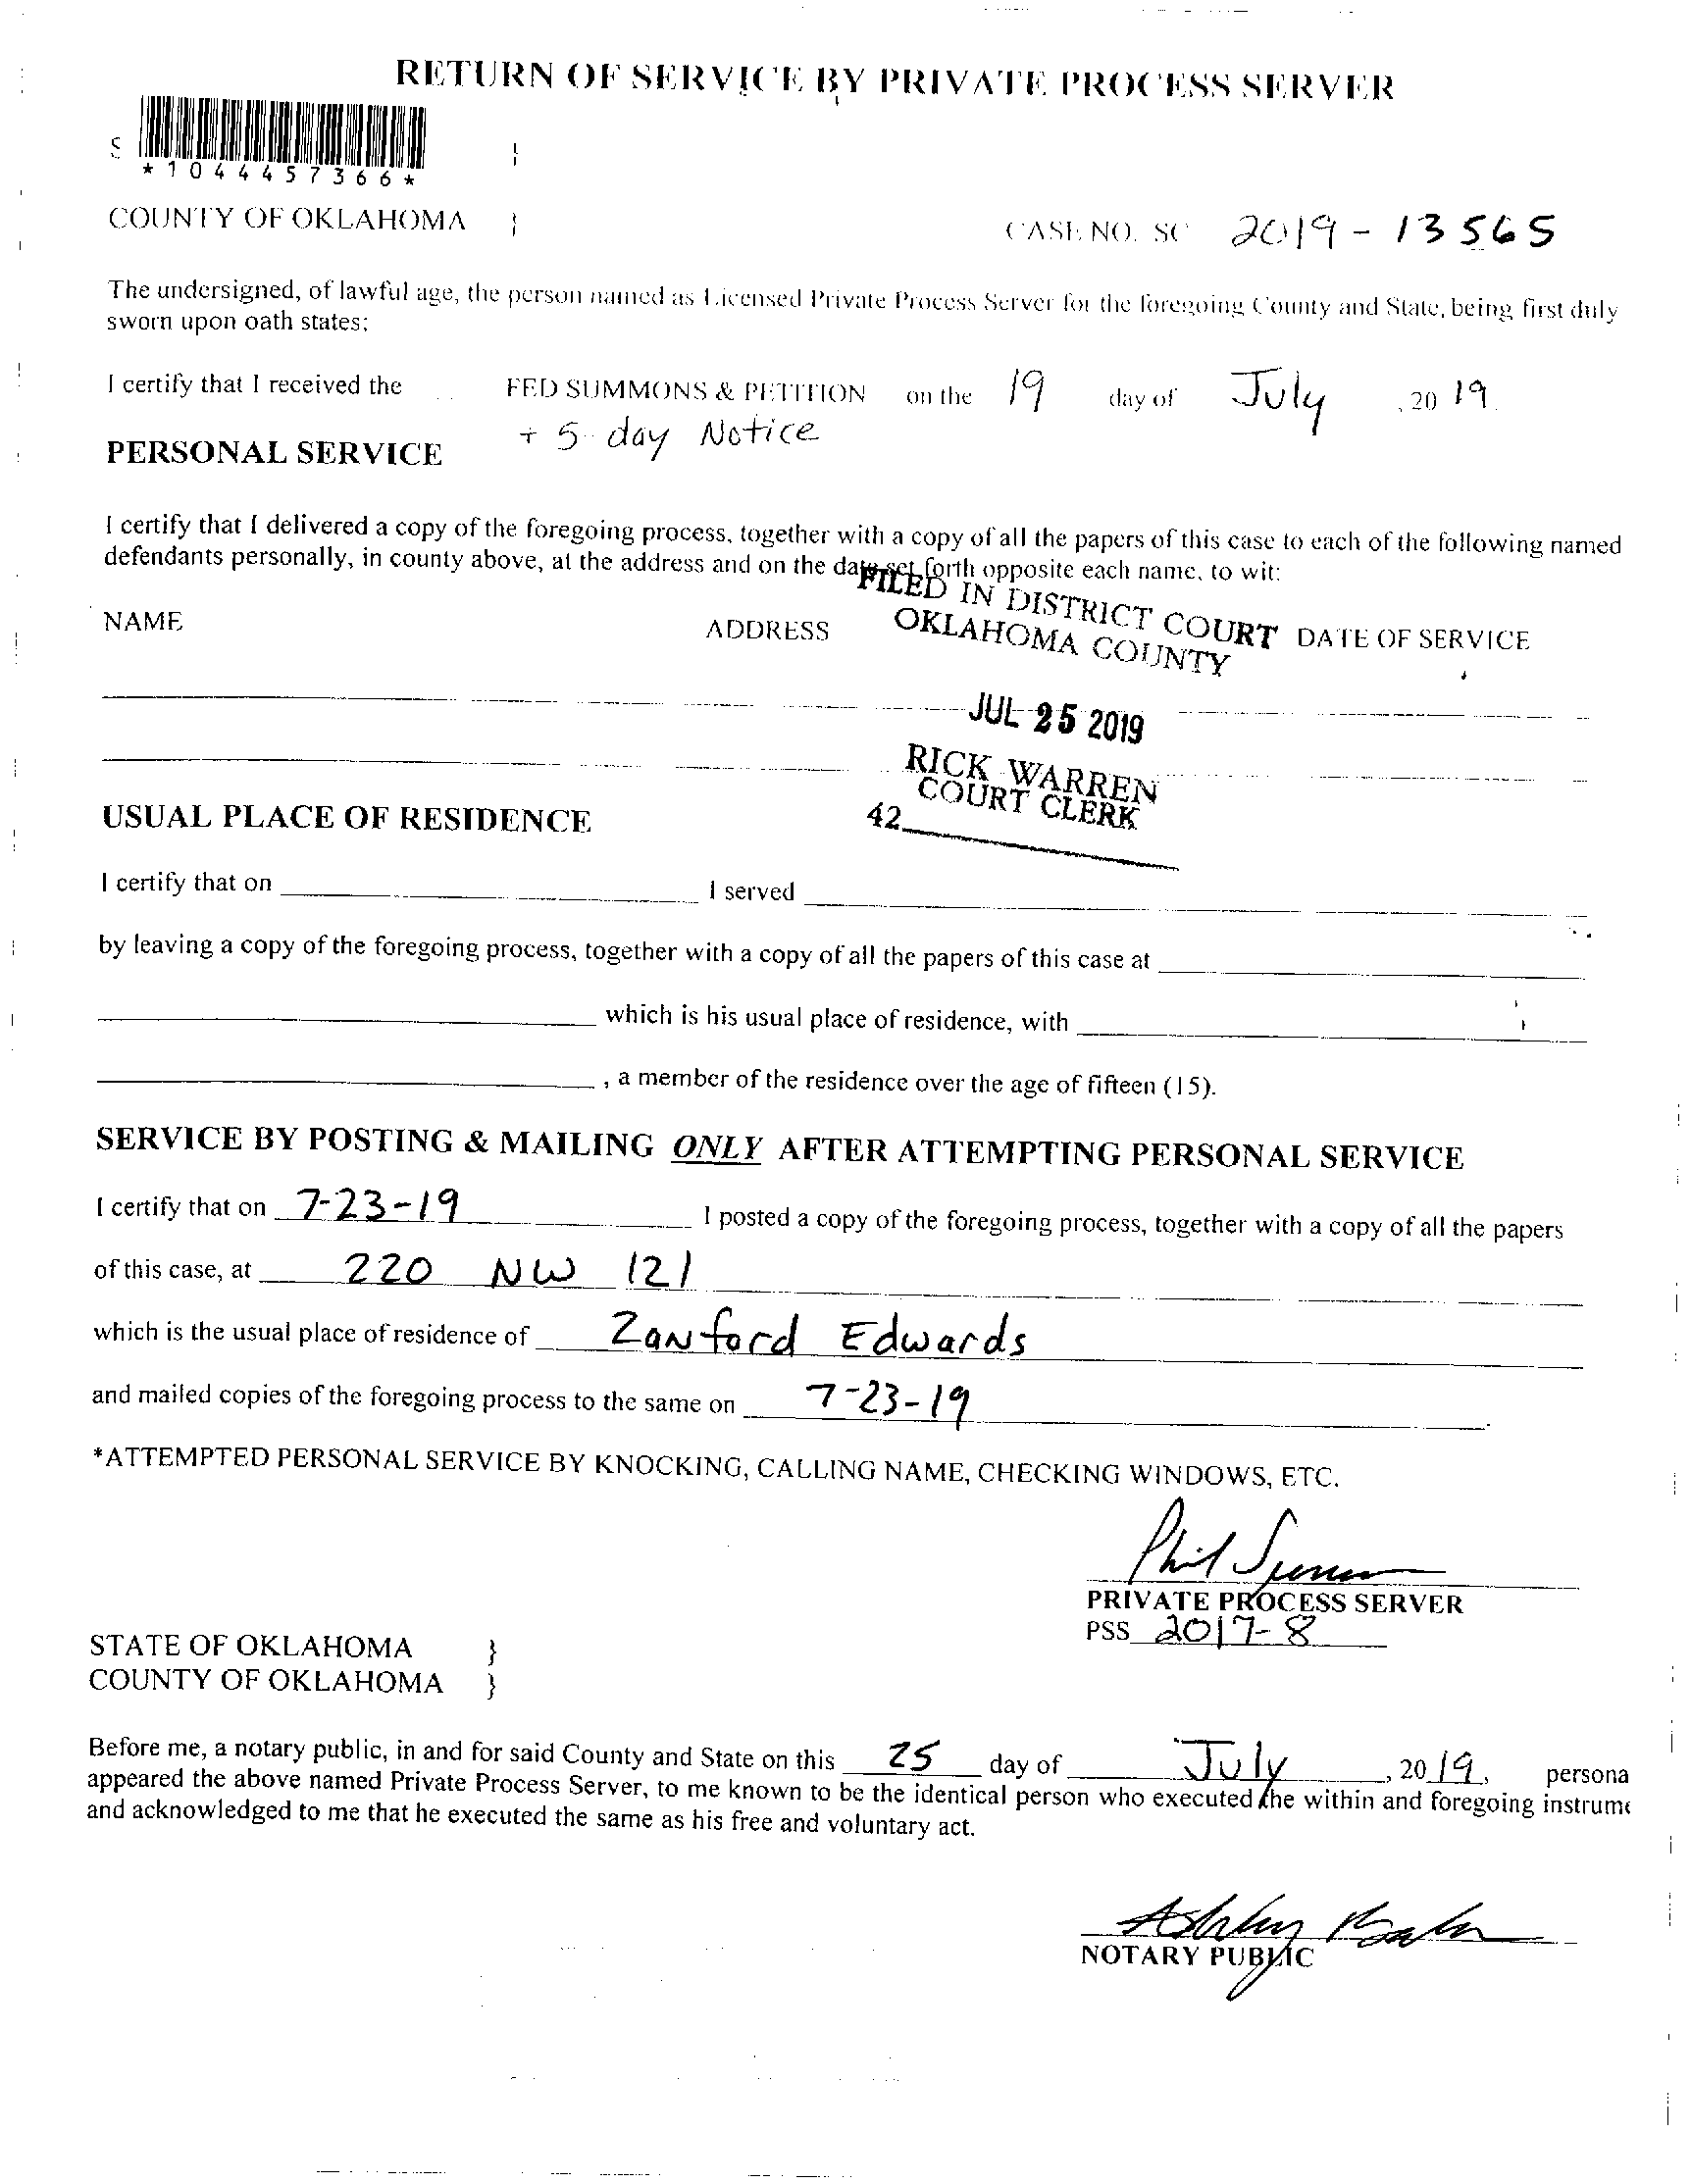 RETURN OF SERVICE BY PRIVATE PROCESS SERVER
S
*1044457366*
COUNTY OF OKLAHOMA }
CASE NO. SC 2019 - 13565
The undersigned, of lawful age, the person named as Licensed Private Process Server for the foregoing County and State, being first duly
sworn upon oath states:
I certify that I received the FED SUMMONS & PETITION on the 19 day of July , 20 19.
+ 5-day Notice
PERSONAL SERVICE
I certify that I delivered a copy of the foregoing process, together with a copy of all the papers of this case to each of the following named
defendants personally, in county above, at the address and on the date set forth opposite each name, to wit:
FILED IN DISTRICT COURT
OKLAHOMA COUNTY
NAME ADDRESS DATE OF SERVICE
JUL 25 2019
RICK WARREN
COURT CLERK
42
USUAL PLACE OF RESIDENCE
I certify that on I served
by leaving a copy of the foregoing process, together with a copy of all the papers of this case at
which is his usual place of residence, with
, a member of the residence over the age of fifteen (15).
SERVICE BY POSTING & MAILING ONLY AFTER ATTEMPTING PERSONAL SERVICE
I certify that on 7-23-19 I posted a copy of the foregoing process, together with a copy of all the papers
of this case, at 220 NW 121
which is the usual place of residence of Zanford Edwards
and mailed copies of the foregoing process to the same on 7-23-19
*ATTEMPTED PERSONAL SERVICE BY KNOCKING, CALLING NAME, CHECKING WINDOWS, ETC.
Phil
PRIVATE PROCESS SERVER
PSS 2017-8
STATE OF OKLAHOMA }
COUNTY OF OKLAHOMA }
Before me, a notary public, in and for said County and State on this 25 day of July , 20 19, persona
appeared the above named Private Process Server, to me known to be the identical person who executed the within and foregoing instrume
and acknowledged to me that he executed the same as his free and voluntary act.
Ashley
NOTARY PUBLIC